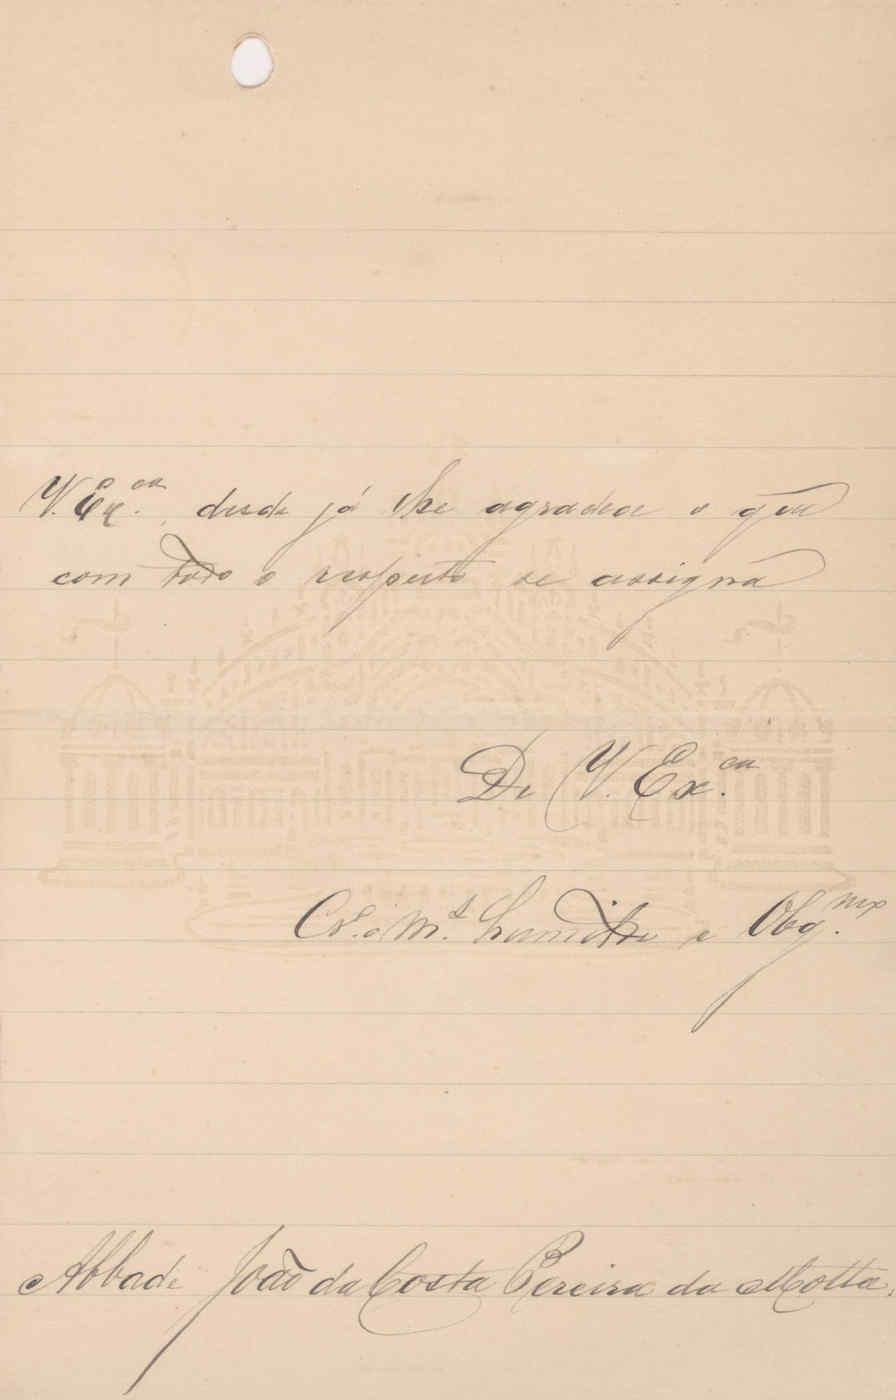 V. Ex.cia, desde já lhe agradece o que
com todo o respeito se assigna
De V. Ex.cia
Cr.º M.to humilde e Obg.mo
Abbade João da Costa Pereira da Motta.